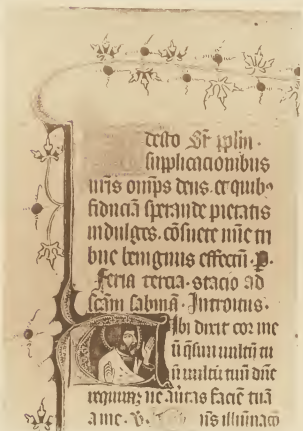 desto S̄r p̄plin ·
supplicacionibus
n̄ris om̄ps deus. et quib᷒
fiduciā sperande pietatis
indulges. cōsuete mīe tri
bue benignus effectū · P.
feria tercia · stacio ad
scām sabinā · Introitus ·
Tibi dixit cor me
ū q̄siui uultū tu
ū uultū tuū dn̄e
requirā; ne au̓tas faciē tuā
a me · V. n̄s illuminac̄o